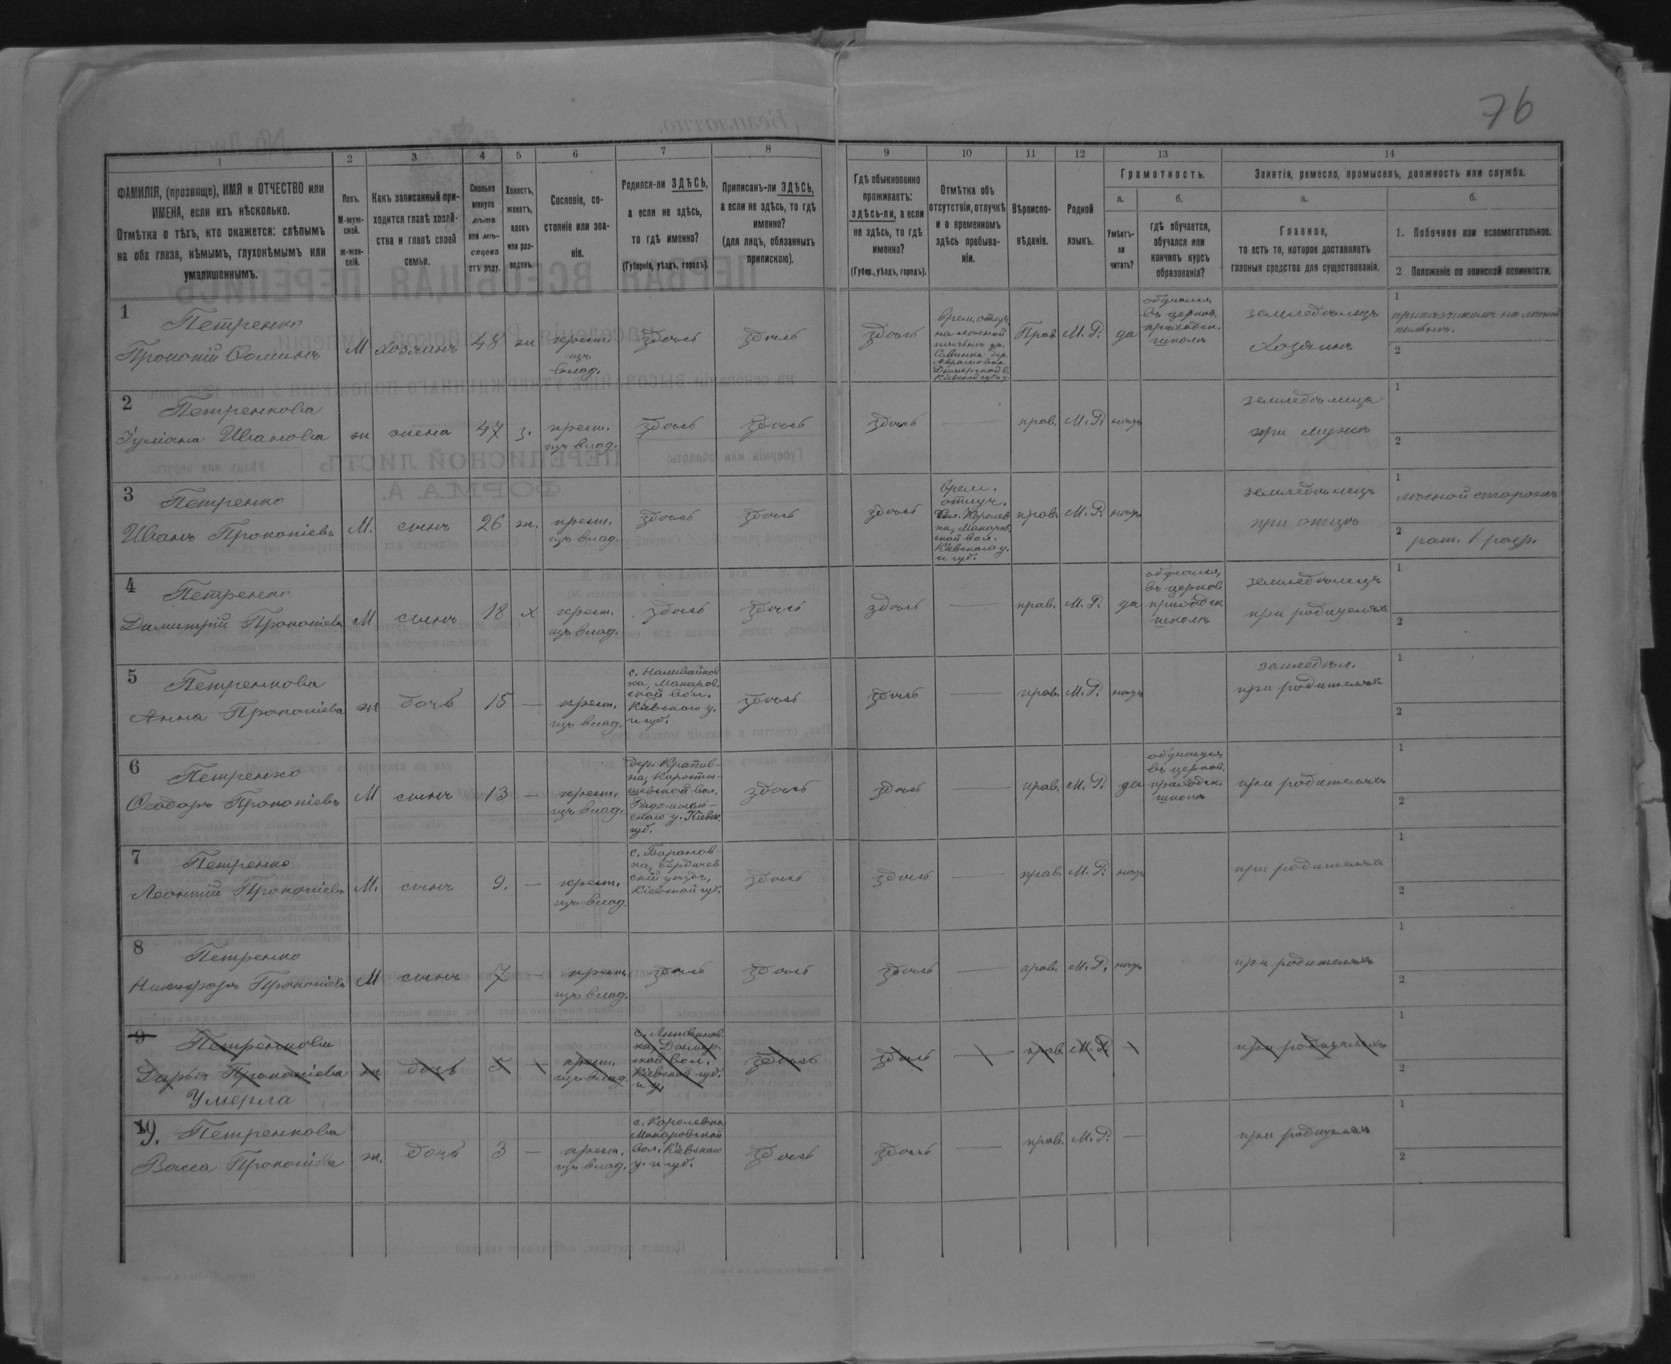 76
1 2 3 4 5 6 7 8 9 10 11 12 13 14
ФАМИЛІЯ, (прозвище), ИМЯ и ОТЧЕСТВО или
ИМЕНА, если ихъ нѣсколько.
Отмѣтка о тѣхъ, кто окажется: слѣпымъ
на оба глаза, нѣмымъ, глухонѣмымъ или
умалишеннымъ.
Полъ.
М-муж-
ской.
ж-жен-
скій.
Какъ записанный при-
ходится главѣ хозяй-
ства и главѣ своей
семьи.
Сколько
минуло
лѣтъ
или мѣ-
сяцевъ
отъ роду.
Холостъ,
женатъ,
вдовъ
или раз-
веденъ.
Сословіе, со-
стояніе или зва-
ніе.
Родился-ли ЗДѢСЬ,
а если не здѣсь,
то гдѣ именно?
(Губернія, уѣздъ, городъ).
Приписанъ-ли ЗДѢСЬ,
а если не здѣсь, то гдѣ
именно?
(для лицъ, обязанныхъ
припискою).
Гдѣ обыкновенно
проживаетъ:
здѣсь-ли, а если
не здѣсь, то гдѣ
именно?
(Губер., уѣздъ, городъ).
Отмѣтка объ
отсутствіи, отлучкѣ
и о временномъ
здѣсь пребыва-
ніи.
Вѣроиспо-
вѣданіе.
Родной
языкъ.
Грамотность.
а.
Умѣетъ-
ли
читать?
б.
гдѣ обучается,
обучался или
кончилъ курсъ
образованія?
Занятія, ремесло, промыселъ, должность или служба.
а.
Главное,
то есть то, которое доставляетъ
главныя средства для существованія.
б.
1. Побочное или вспомогательное.
2 Положеніе по воинской повинности.
1
Петренко
Прокопій Фоминъ
М
хозяинъ
48
ж
крест.
изъ
влад.
здѣсь
здѣсь
здѣсь
Прав
М. Р.
да
обучался
въ церков.
приходск.
школѣ
земледѣлецъ
Хозяинъ
1
2
2
Петренкова
Ивановa
ж
жена
47
з.
крест.
изъ влад.
здѣсь
здѣсь
здѣсь
прав.
М. Р.
нѣтъ
земледѣлица
при мужѣ
1
2
3
Петренко
Иванъ Прокопіевъ
М.
сынъ
26
ж.
крест.
изъ влад.
здѣсь
здѣсь
здѣсь
Врем.
отлуч.
Королев
ка, Макаров
ской вол.
Кіевскаго у.
и губ.
прав.
М. Р.
нѣтъ
земледѣлецъ
при отцѣ
1
лѣсной сторожъ
2
рат. 1 разр.
4
Петренко
Димитрій Прокопіевъ
М
сынъ
18
х
крест.
изъ влад.
здѣсь
здѣсь
здѣсь
прав.
М. Р.
да
обучался
въ церков
приходск
школѣ
земледѣлецъ
при родителяхъ
1
2
5
Петренкова
Анна Прокопіева
ж
дочь
15
—
крест.
изъ влад.
с. Наливайков
ка, Макаров.
ской вол.
Кіевскаго у.
и губ.
здѣсь
здѣсь
прав.
М. Р.
нѣтъ
земледѣл.
при родителяхъ
1
2
6
Петренко
Ѳеодоръ Прокопіевъ
М
сынъ
13
—
крест.
изъ влад.
дер. Крапив-
на, Коросты-
шевской вол.
Радомысл-
скаго у. Кіевск.
губ.
здѣсь
здѣсь
прав.
М. Р.
да
обучается
въ церков.
приходск.
школѣ
при родителяхъ
1
2
7
Петренко
Леонтій Прокопіевъ
М.
сынъ
9.
—
крест.
изъ влад.
с. Баранов-
ка, Бердичев
скій уѣздъ,
Кіевской губ.
здѣсь
здѣсь
прав.
М. Р.
нѣтъ
при родителяхъ
1
2
8
Петренко
Никифоръ Прокопіевъ
М
сынъ
7
—
крест.
изъ влад.
здѣсь
здѣсь
здѣсь
прав.
М. Р.
нѣтъ
при родителяхъ
1
2
9
Петренкова
Дарья Прокопіева
Умерла
ж
дочь
крест.
изъ влад.
Кіевской губ.
и у.
здѣсь
здѣсь
прав.
М. Р.
при родителяхъ
1
2
9.
Петренкова
Васса Прокопіева
ж.
дочь
3
—
крест.
изъ влад.
с. Королевка
Макаровской
вол. Кіевскаго
у. и губ.
здѣсь
здѣсь
прав.
М. Р.
—
при родителяхъ
1
2